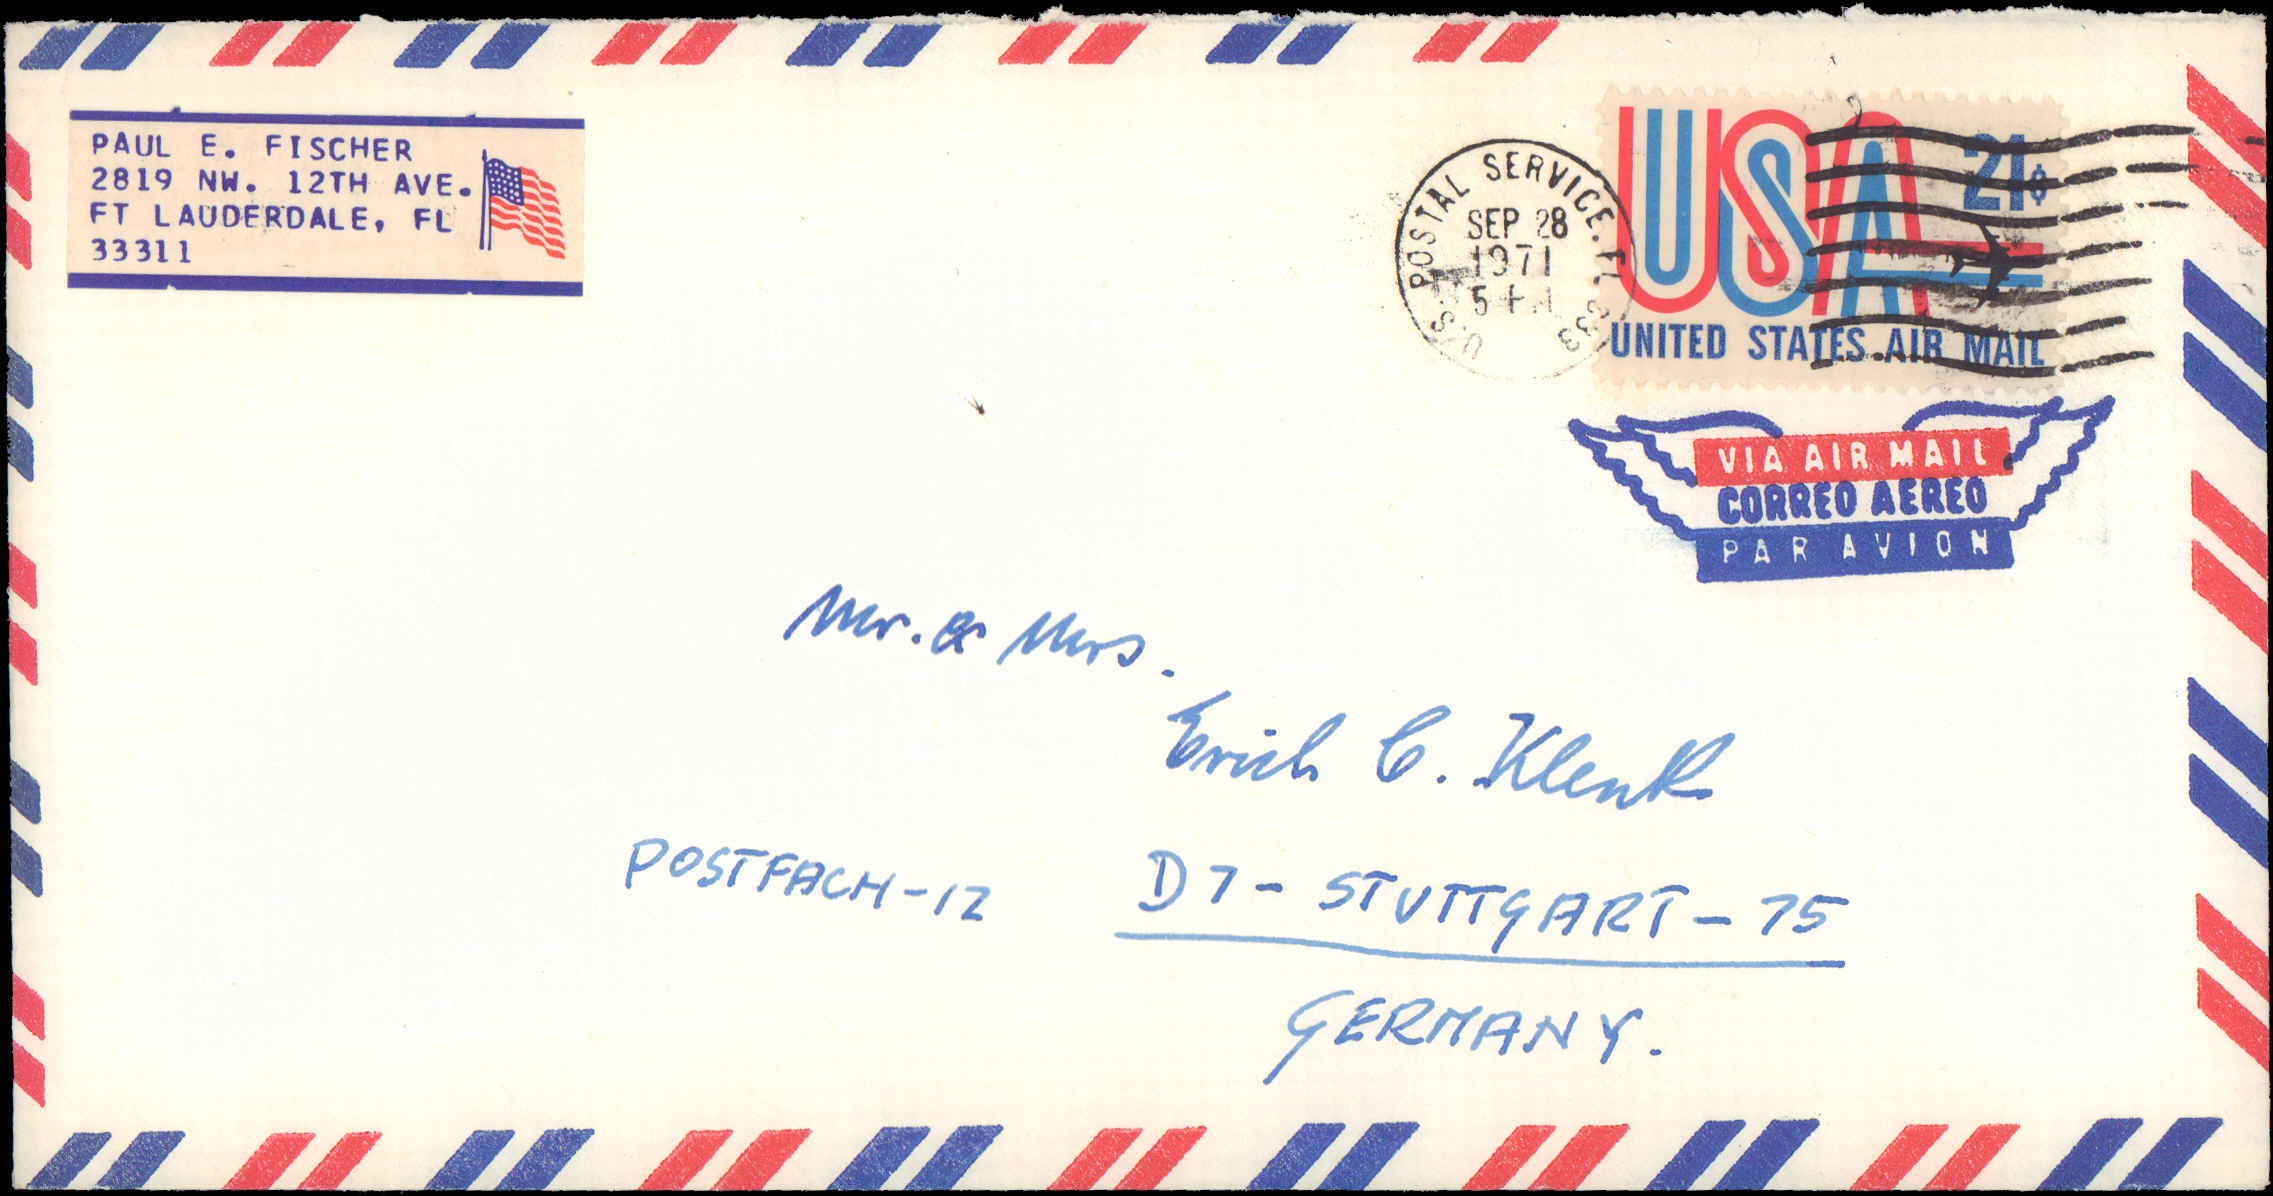 PAUL E. FISCHER
2819 NW. 12TH AVE.
FT LAUDERDALE, FL
33311
U.S. POSTAL SERVICE. FL 333
SEP 28
1971
USA 21¢
UNITED STATES AIR MAIL
VIA AIR MAIL
CORREO AEREO
PAR AVION
Mr. & Mrs.
Erich C. Klenk
POSTFACH-12
D7-STUTTGART-75
GERMANY.